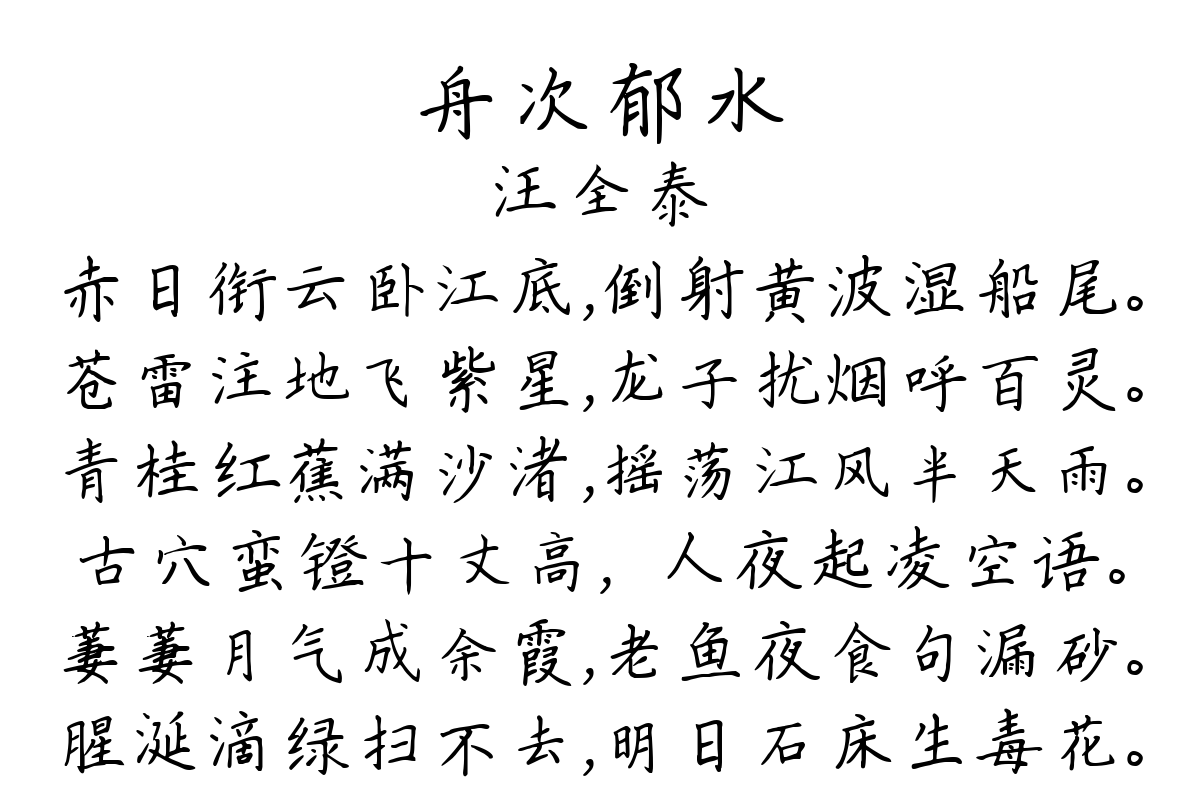 舟次郁水
汪全泰
赤日衔云卧江底,倒射黄波湿船尾。
苍雷注地飞紫星,龙子扰烟呼百灵。
青桂红蕉满沙渚,摇荡江风半天雨。
古穴蛮镫十丈高,人夜起凌空语。
萋萋月气成余霞,老鱼夜食句漏砂。
腥涎滴绿扫不去,明日石床生毒花。